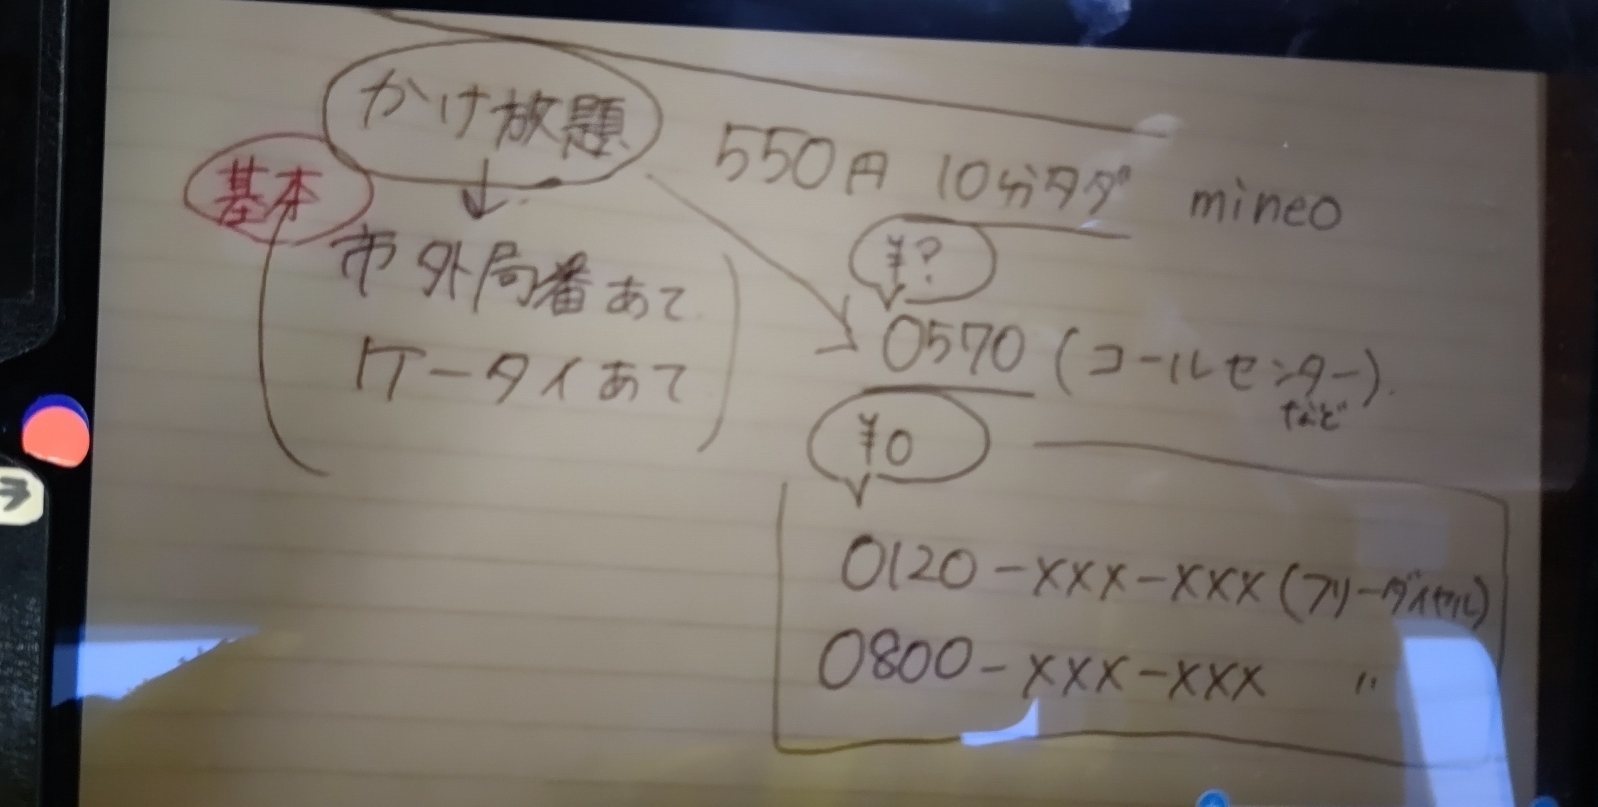 かけ放題
550円 10分タダ mineo
基本
市外局番あて
ケータイあて
¥?
0570 (コールセンター)
など
¥0
0120-XXX-XXX (フリーダイヤル)
0800-XXX-XXX 〃
ラ